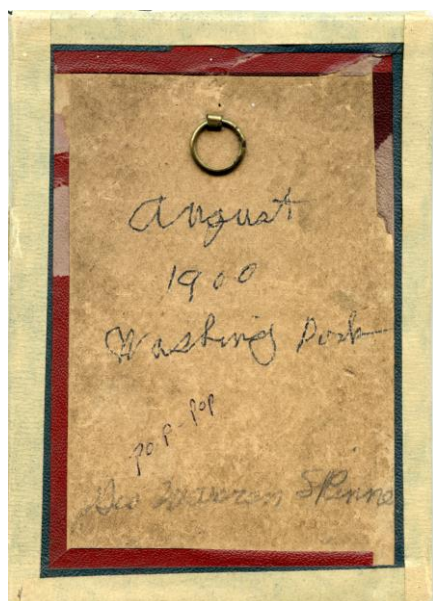 August
1900
Washing
pop-pop
Geo Warren Skinne